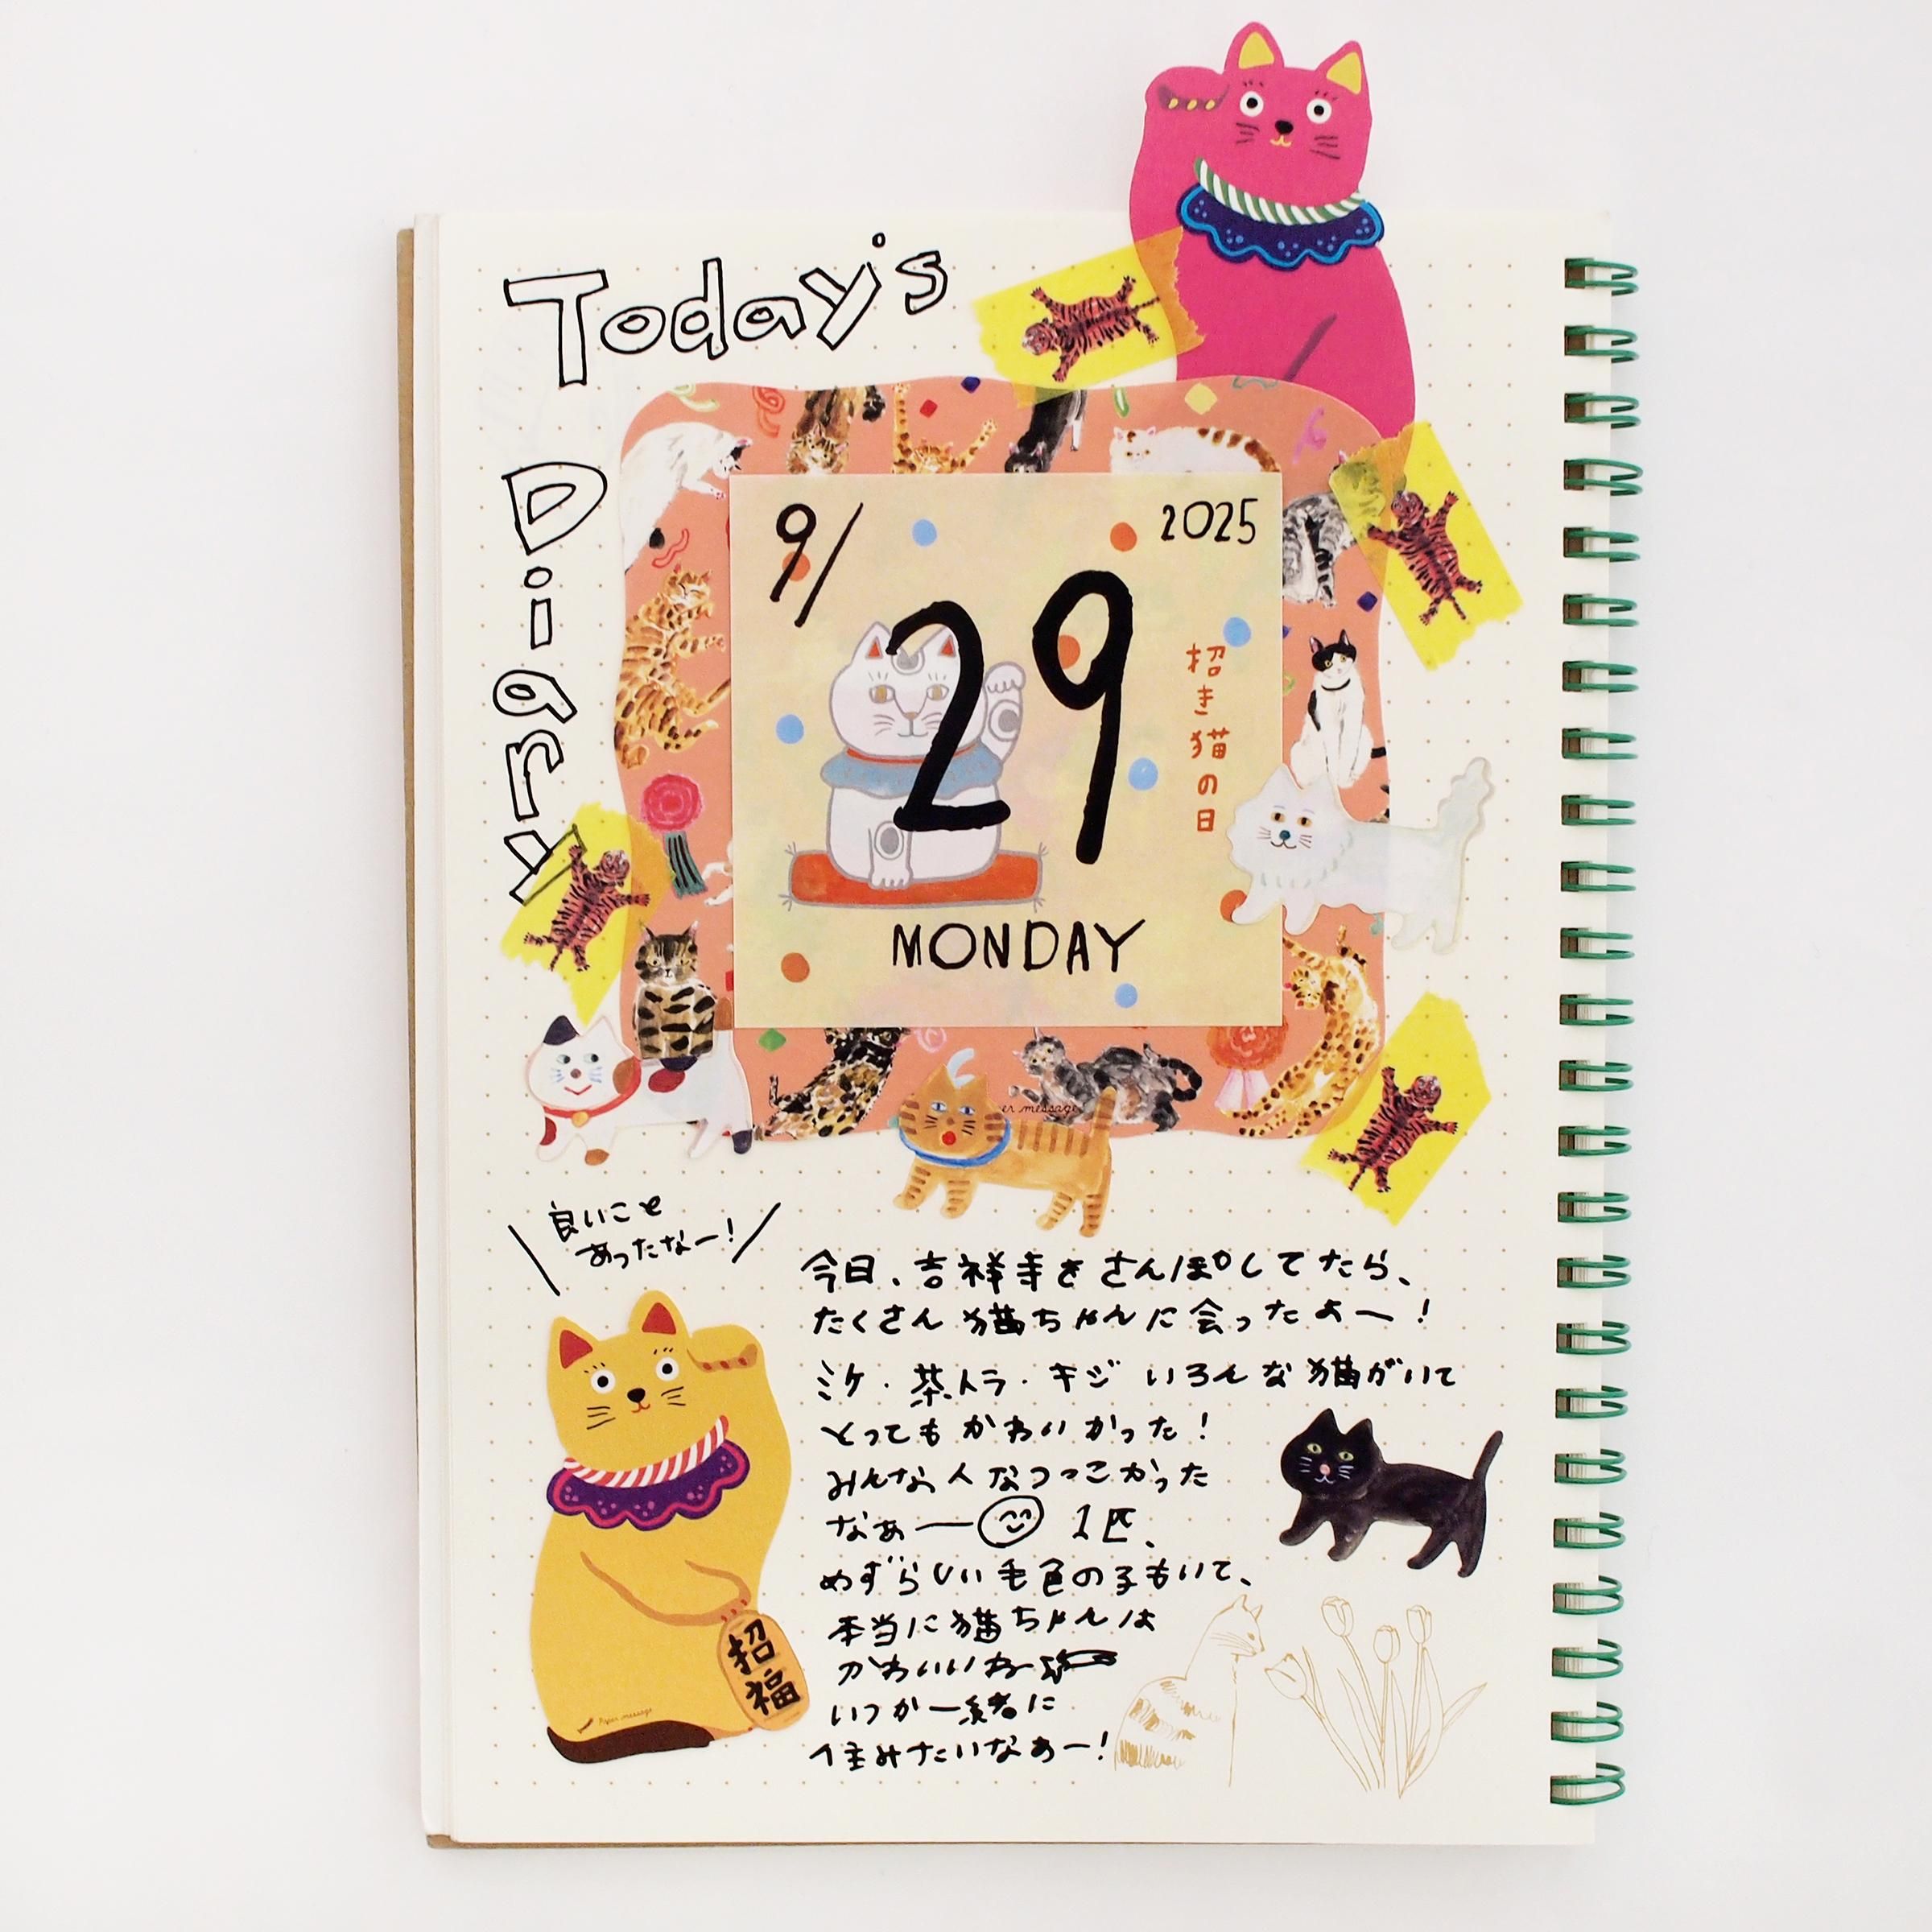 Today's
Diary
9/
2025
29
招き猫の日
MONDAY
er message
良いこと
あったなー!
今日、吉祥寺をさんぽしてたら、
たくさん猫ちゃんに会ったよー!
ミケ・茶トラ・キジ いろんな猫がいて
とってもかわいかった!
みんな人なつっこかった
なぁー 1匹、
めずらしい毛色の子もいて、
本当に猫ちゃんは
かわいいねー
いつか一緒に
住みたいなぁー!
招福
Paper message